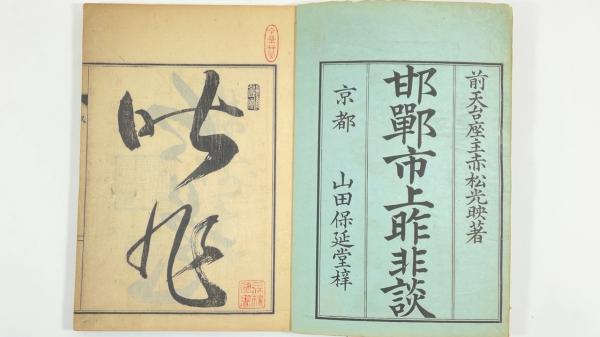 前天台座主赤松光映著
邯鄲市上昨非談
京都　山田保延堂梓
昨非